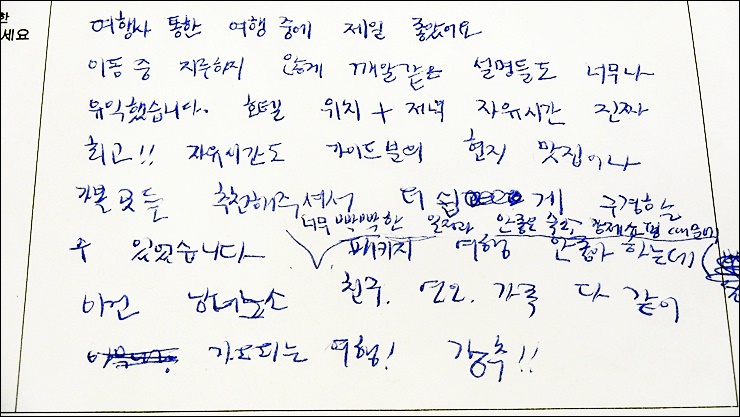 한
세요
여행사 통한 여행 중에 제일 좋았어요
이동 중 지루하지 않게 깨알같은 설명들도 너무나
유익했습니다. 호텔 위치 + 저녁 자유시간 진짜
최고!! 자유시간도 가이드분의 현지 맛집이나
가볼 곳들 추천해주셔서 더 쉽게 구경하는
수 있었습니다
너무 빡빡한 일정과 안좋은 숙소, 강제쇼핑 때문에
패키지 여행 안좋아 하는데
이건 남녀노소 친구, 연인, 가족 다 같이
가도되는 여행! 강추!!